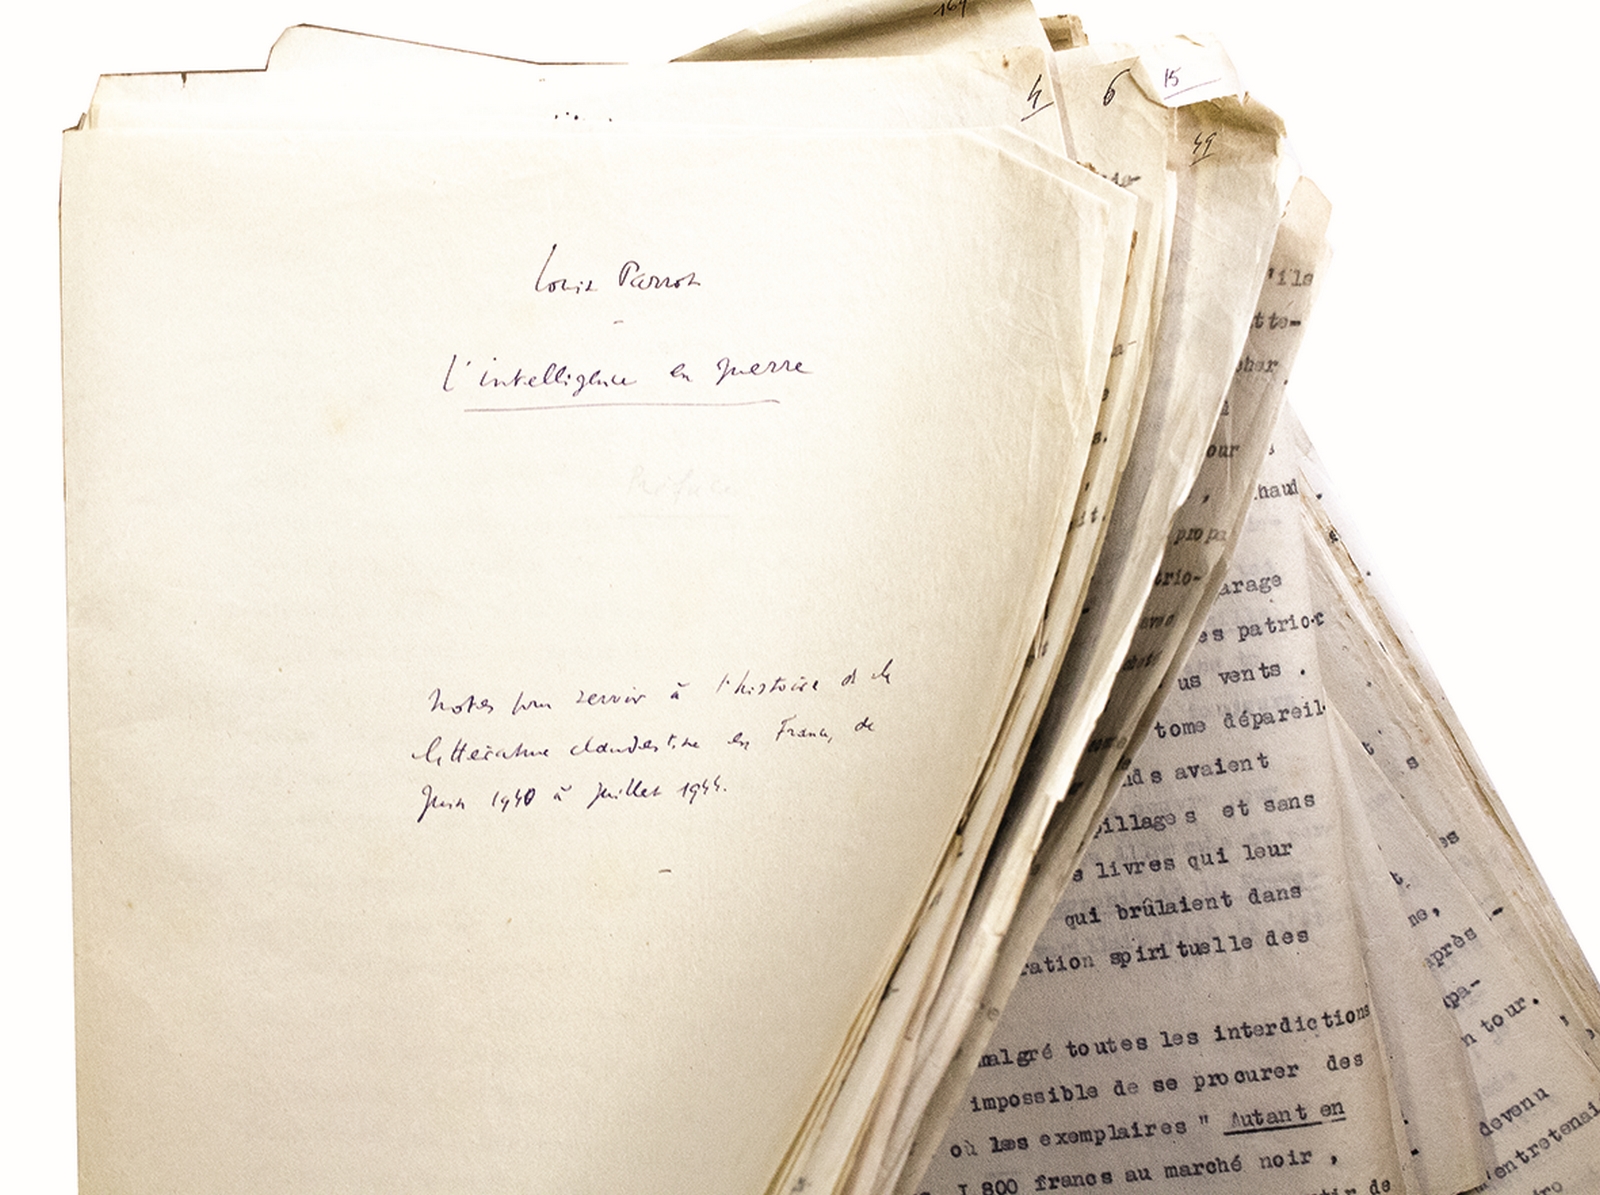 164
4
6
15
49
Louis Parrot
L'intelligence en guerre
Préface
Notes pour servir à l'histoire de la
littérature clandestine en France, de
Juin 1940 à Juillet 1944.
'ils
tté-
our
haud
propa
trio-
arage
avec
es patrio-
us vents .
tome dépareil-
nds avaient
pillages et sans
s livres qui leur
qui brûlaient dans
ration spirituelle des
malgré toutes les interdictions
impossible de se procurer des
où les exemplaires " Autant en
I 800 francs au marché noir ,
tir de
s
es
t,
ne,
après
pa-
n tour.
devenu
entretenai